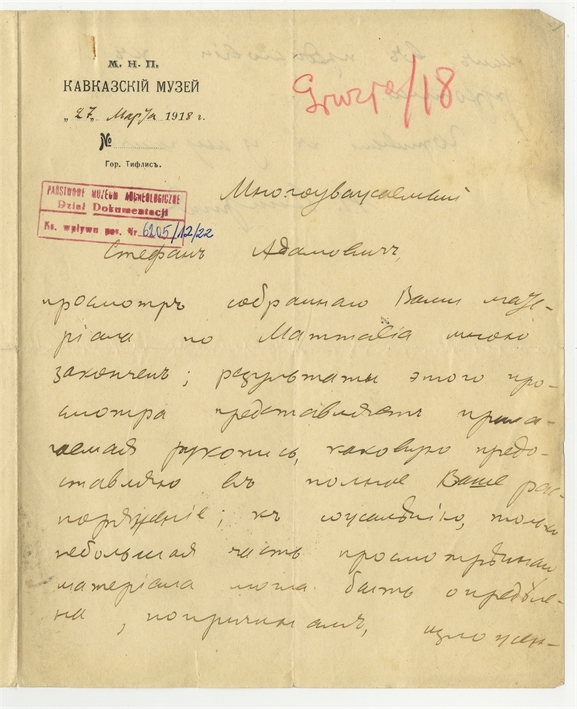 М. Н. П.
КАВКАЗСКІЙ МУЗЕЙ
„27„ Марта 1918 г.
№
Гор. Тифлисъ.
Gruzja/18
PAŃSTWOWE MUZEUM ARCHEOLOGICZNE
Dział Dokumentacji
Ks. wpływu poz. Nr. 6205/12/22
Многоуважаемый
Стефанъ Адамовичъ,
просмотръ собраннаго Вами мате-
ріала по Mammalia мною
законченъ; результаты этого про-
смотра представляетъ прила-
гаемая рукопись, каковую предо-
ставляю въ полное Ваше рас-
поряженіе; къ сожалѣнію, только
небольшая часть просмотрѣннаго
матеріала могла быть опредѣле-
на, по причинамъ, изложен-